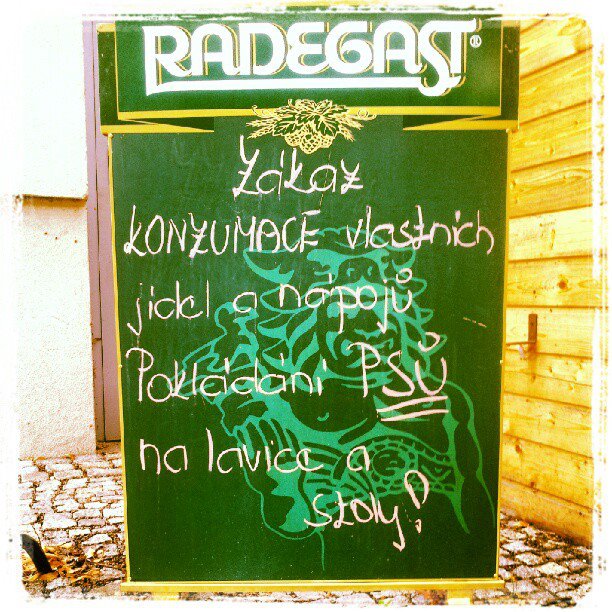 RADEGAST®
Zákaz
KONZUMACE vlastních
jídel a nápojů
Pokládání PSŮ
na lavice a
stoly!